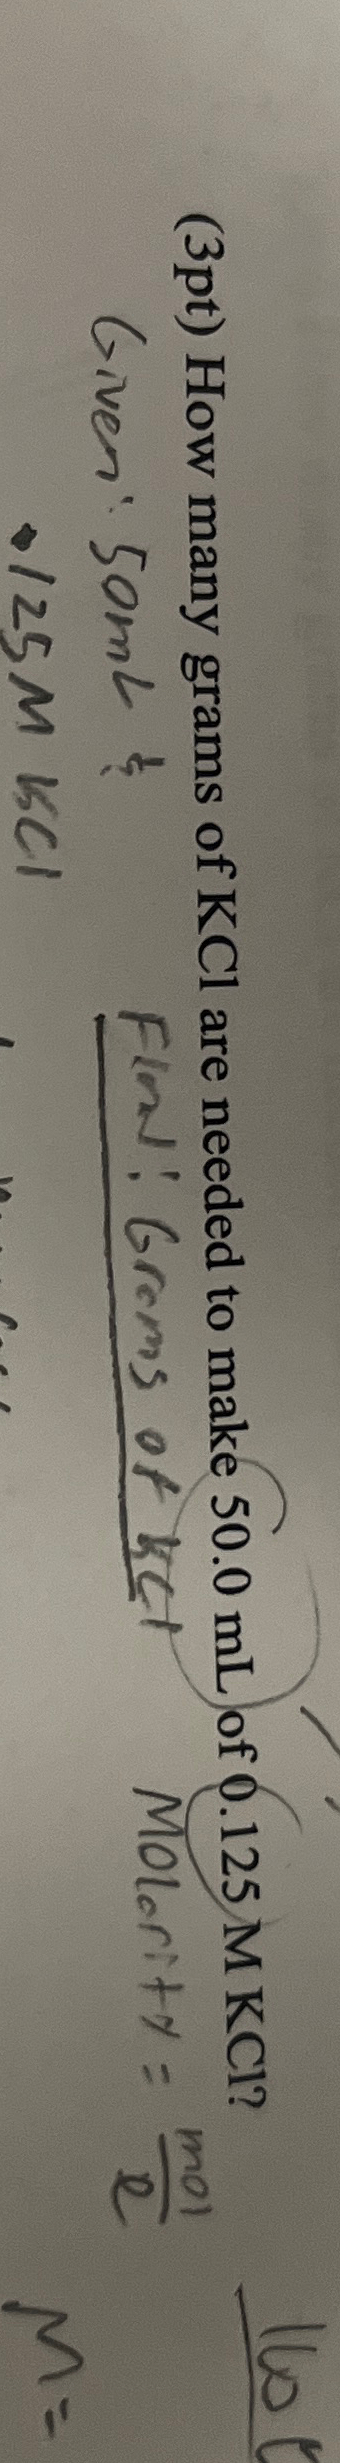 (3pt) How many grams of KCl are needed to make 50.0 mL of 0.125 M KCl?
Given: 50mL &
Find: Grams of KCl
Molarity = mol/l
.125 M KCl
M =